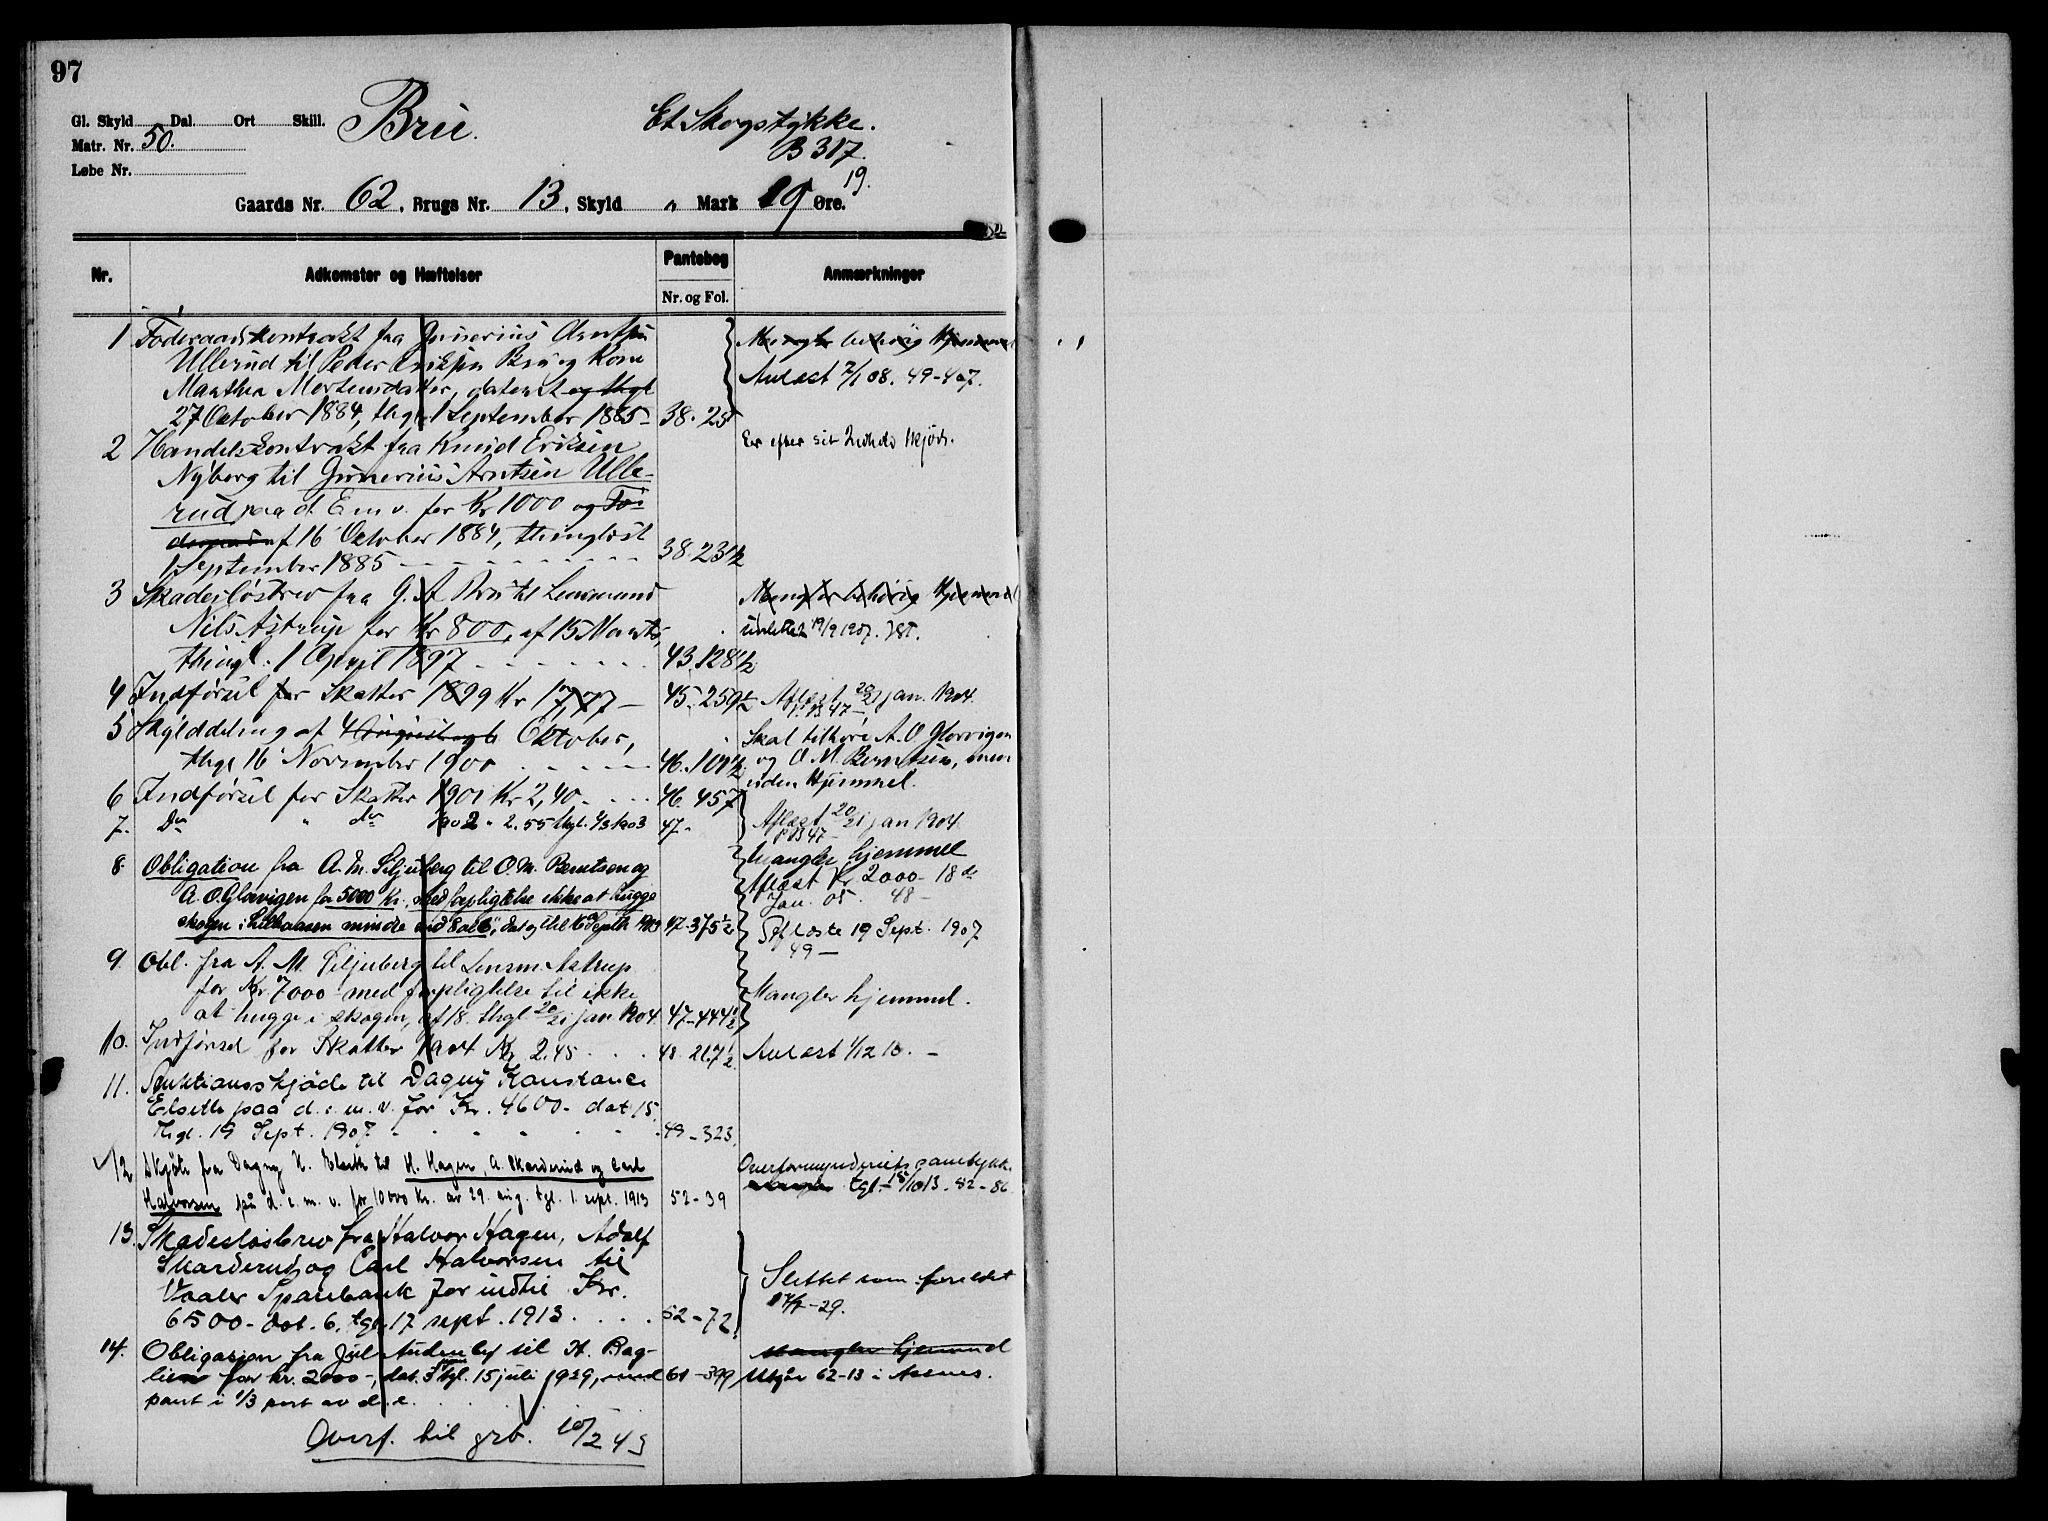 97
Gl. Skyld Dal. Ort Skill. Bru. Et Skogstykke.
Matr. Nr. 50. B 317.
Løbe Nr.
19.
Gaards Nr. 62, Brugs Nr. 13, Skyld " Mark 19 Øre.
Nr. Adkomster og Hæftelser Pantebog Anmærkninger
Nr. og Fol.
1 Føderaadskontrakt fra Gunerius Arntsen Mangler behørig Hjemmel
Ullerud til Peder Eriksen Bru og Kone
Marthea Mortensdatter, dateret og thgl Avlæst 2/1 08. 49-407.
27 October 1884, thgl. 1 September 1885 38. 25
2 Handelskontrakt fra Knud Eriksen Er efter sit Indhold skjøde.
Nyborg til Gunerius Arntsen Ulle-
rud paa d. E. m. v. for Kr 1000 og Fø-
deraad af 16 October 1884, thinglæst
1 September 1885 38. 23 1/2
3 Skadesløsbrev fra G. A. Bru til Lensmand Mangler behørig Hjemmel
Nils Astrup for Kr 800, af 15 Marts, 19/9 1907.
thingl. 1 April 1897 43. 128 1/2
4 Indførsel for Skatter 1899 Kr 17,77 45. 259 1/2 Aflæst 20/21 jan. 1904.
P.B 47
5 Skylddeling af 4 August og 6 Oktober, Skal tilhøre A. O. Glorvigen
thgl 16 November 1900 46. 109 1/2 og O. M. Berntsen, men
uden Hjemmel.
6 Indførsel for Skatter 1901 Kr 2,40 46. 457
7. Do " do 1902 " 2.55 thgl. 4/3 1903 47- Aflæst 20/21 jan 1904
P B 47
8. Obligation fra A. M. Siljuberg til O. M. Berntsen og Mangler hjemmel
A. O. Glorvigen for 5000 Kr. med forpligtelse ikke at hugge Aflæst Kr. 2000- 18de
Jan. 05. 48-
skogen i mindre end 8 al 6", dat og thgl Septbr 1903 47. 375 1/2 Aflæste 19 Sept. 1907
49-
9. Obl. fra A. M. Siljuberg til Lensm. Astrup
for Kr 7000 med forpligtelse til ikke Mangler hjemmel.
at hugge i skogen, af 18. thgl 20/21 jan 1904. 47-444 1/2
10. Indførsel for Skatter 1904 Kr. 2.45 48. 217 1/2 Avlæst 1/12 10. -
11. Auktionsskjøde til Dagny Konstance
Elseth paa d. e. m. v. for Kr. 4600- dat 15.
Thgl. 19 Sept. 1907 49-323.
12 Skjøte fra Dagny K. Elseth til H. Hagen, A. Skarderud og Carl Overformynderiets samtykke
Halvorsen på d. e. m. v. for 10000 kr. av 29. aug. tgl. 1. sept. 1913 52-39 mangler tgl. 15/10 13. 52-86.
13. Skadesløsbrev fra Halvor Hagen, Adolf
Skarderud og Carl Halvorsen til Slettet som foreldet
Vaaler Sparebank for indtil Kr. 17/7-29.
6500- dat. 6. tgl. 17 sept. 1913. 52-72
14. Obligasjon fra Jul. til H. Bag- Mangler hjemmel
lien for kr. 2000-, dat. 3 tgl. 15 juli 1929, med 61-399 Utgår 62-13 i Aasnes.
pant i 1/3 part av d. e.
Overf. til grb. 10/2 45